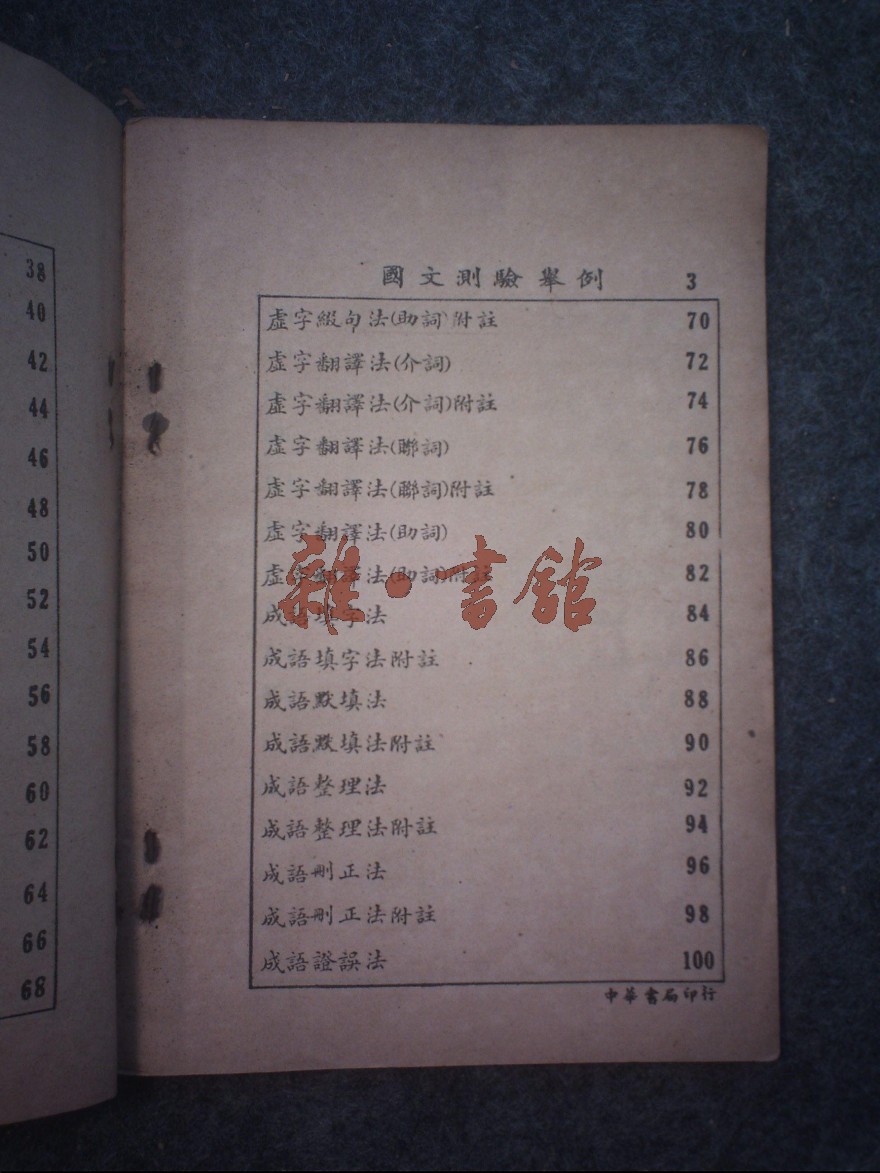 38
40
42
44
46
48
50
52
54
56
58
60
62
64
66
68
國文測驗舉例 3
虛字綴句法(助詞)附註 70
虛字翻譯法(介詞) 72
虛字翻譯法(介詞)附註 74
虛字翻譯法(聯詞) 76
虛字翻譯法(聯詞)附註 78
虛字翻譯法(助詞) 80
虛字翻譯法(助詞)附註 82
成語填字法 84
成語填字法附註 86
成語默填法 88
成語默填法附註 90
成語整理法 92
成語整理法附註 94
成語刪正法 96
成語刪正法附註 98
成語證誤法 100
中華書局印行
雜·書館